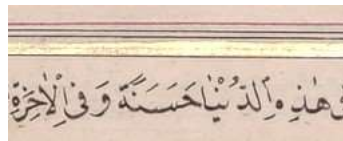 هٰذِهِ الدُّنْيَا حَسَنَةً وَفِي الْاٰخِرَةِ